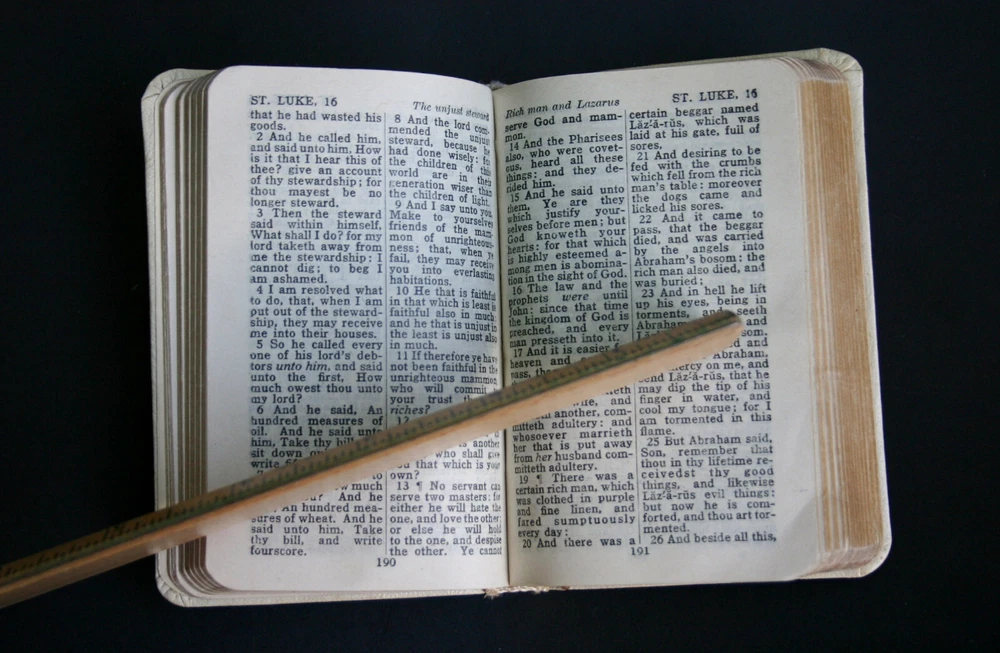 ST. LUKE, 16
The unjust steward
that he had wasted his
goods.
2 And he called him,
and said unto him, How
is it that I hear this of
thee? give an account
of thy stewardship; for
thou mayest be no
longer steward.
3 Then the steward
said within himself,
What shall I do? for my
lord taketh away from
me the stewardship: I
cannot dig; to beg I
am ashamed.
4 I am resolved what
to do, that, when I am
put out of the steward-
ship, they may receive
me into their houses.
5 So he called every
one of his lord's deb-
tors unto him, and said
unto the first, How
much owest thou unto
my lord?
6 And he said, An
hundred measures of
oil. And he said unto
him, Take thy bill,
sit down
write
much
And he
An hundred mea-
sures of wheat. And he
said unto him, Take
thy bill, and write
fourscore.
8 And the lord com-
mended the unjust
steward, because he
had done wisely: for
the children of this
world are in their
generation wiser than
the children of light.
9 And I say unto you,
Make to yourselves
friends of the mam-
mon of unrighteous-
ness; that, when ye
fail, they may receive
you into everlasting
habitations.
10 He that is faithful
in that which is least is
faithful also in much:
and he that is unjust in
the least is unjust also
in much.
11 If therefore ye have
not been faithful in the
unrighteous mammon,
who will commit
your trust
riches?
12
another
who shall give
you that which is your
own?
13 ¶ No servant can
serve two masters: for
either he will hate the
one, and love the other:
or else he will hold
to the one, and despise
the other. Ye cannot
190
Rich man and Lazarus
ST. LUKE, 16
serve God and mam-
mon.
14 And the Pharisees
also, who were covet-
ous, heard all these
things: and they de-
rided him.
15 And he said unto
them, Ye are they
which justify your-
selves before men; but
God knoweth your
hearts: for that which
is highly esteemed a-
mong men is abomina-
tion in the sight of God.
16 The law and the
prophets were until
John: since that time
the kingdom of God is
preached, and every
man presseth into it.
17 And it is easier
heaven and
pass,
wife, and
another, com-
mitteth adultery: and
whosoever marrieth
her that is put away
from her husband com-
mitteth adultery.
19 ¶ There was a
certain rich man, which
was clothed in purple
and fine linen, and
fared sumptuously
every day:
20 And there was a
certain beggar named
Lăz'-ȧ-rŭs, which was
laid at his gate, full of
sores,
21 And desiring to be
fed with the crumbs
which fell from the rich
man's table: moreover
the dogs came and
licked his sores.
22 And it came to
pass, that the beggar
died, and was carried
by the angels into
Abraham's bosom: the
rich man also died, and
was buried;
23 And in hell he lift
up his eyes, being in
torments, and seeth
Abraham and
and
Abraham,
mercy on me, and
send Lăz'-ȧ-rŭs, that he
may dip the tip of his
finger in water, and
cool my tongue; for I
am tormented in this
flame.
25 But Abraham said,
Son, remember that
thou in thy lifetime re-
ceivedst thy good
things, and likewise
Lăz'-ȧ-rŭs evil things:
but now he is com-
forted, and thou art tor-
mented.
26 And beside all this,
191